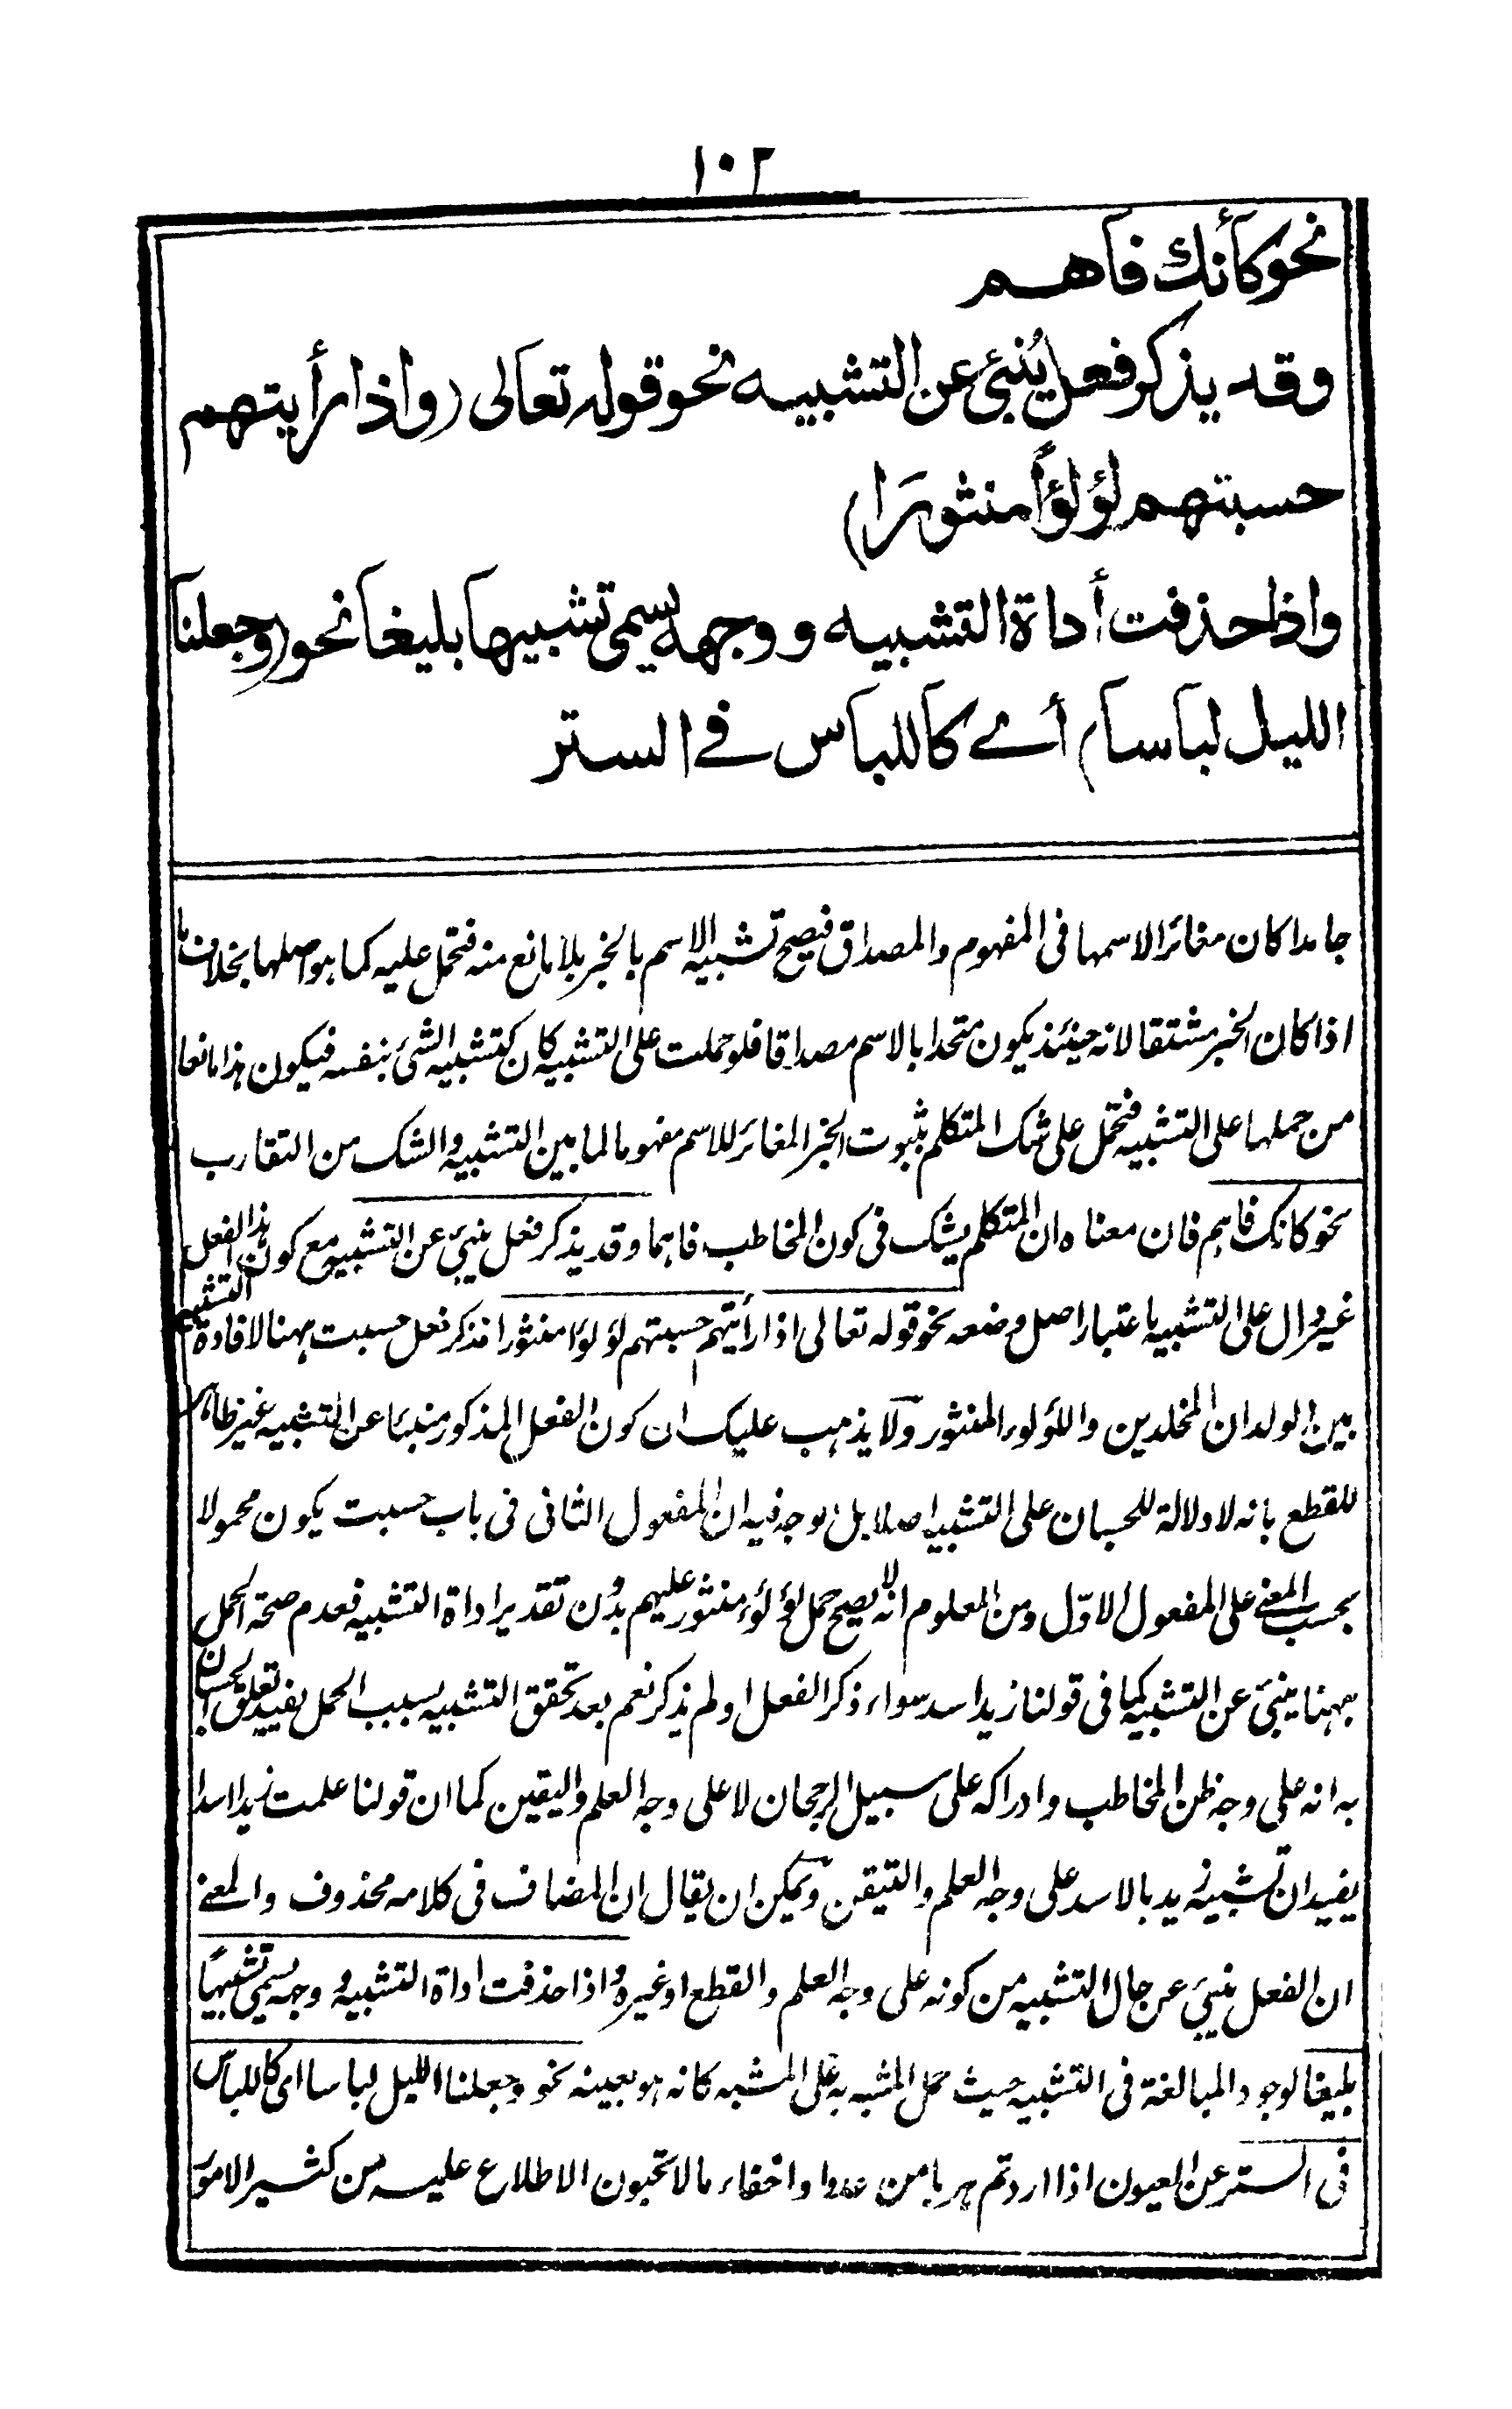 ١٠٢
نحو كأنك فاهم
وقد يذكر فعل يُنبئ عن التشبيه نحو قوله تعالى (واذا رأيتهم
حسبتهم لؤلؤاً منثورا)
واذا حذفت أداة التشبيه ووجهه يسمى تشبيها بليغا نحو (وجعلنا
الليل لباسا) أے كاللباس فے الستر
جامدا كان مغائرا لاسمها فى المفهوم والمصداق فيصح تشبيه الاسم بالخبر بلا مانع منه فتحمل عليه كما هو اصلها بخلاف ما
اذا كان الخبر مشتقا لانه حينئذ يكون متحدا بالاسم مصداقا فلو حملت على التشبيه كان كتشبيه الشئ بنفسه فيكون هذا مانعا
من حملها على التشبيه فتحمل على شك المتكلم بثبوت الخبر المغائر للاسم مفهوما لما بين التشبيه والشك من التقارب
نحو كانك فاهم فان معناه ان المتكلم يشك فى كون المخاطب فاهما وقد يذكر فعل ينبئ عن التشبيه مع كون هذا الفعل
غير دال على التشبيه باعتبار اصل وضعه نحو قوله تعالى اذا رأيتهم حسبتهم لؤلؤا منثورا فذكر فعل حسبت ههنا لافادة التشبيه
بين الولدان المخلدين واللؤلوء المنثور ولا يذهب عليك ان كون الفعل المذكور منبئا عن التشبيه غير ظاهر
للقطع بانه لا دلالة للحسبان على التشبيه اصلا بل الوجه فيه ان المفعول الثانى فى باب حسبت يكون محمولا
بحسب المعنے على المفعول الاوّل ومن المعلوم انه لا يصح حمل لؤلؤء منثور عليهم بدون تقدير اداة التشبيه فعدم صحة الحمل
ههنا ينبئ عن التشبيه كما فى قولنا زيد اسد سواء ذكر الفعل او لم يذكر نعم بعد تحقق التشبيه بسبب الحمل يفيد تعلق الحسبان
به انه على وجه ظن المخاطب وادراكه على سبيل الرجحان لا على وجه العلم واليقين كما ان قولنا علمت زيدا اسدا
يفيد ان تشبيه زيد بالاسد على وجه العلم والتيقن ويمكن ان يقال ان المضاف فى كلامه محذوف والمعنے
ان الفعل ينبئ عن حال التشبيه من كونه على وجه العلم والقطع او غيره واذا حذفت اداة التشبيه ووجهه يسمى تشبيهًا
بليغا لوجود المبالغة فى التشبيه حيث حمل المشبه به على المشبه كانه هو بعينه نحو وجعلنا الليل لباسا اى كاللباس
فى الستر عن العيون اذا اردتم هربا من عدو او اخفاء ما لا تحبون الاطلاع عليه من كثير الامور